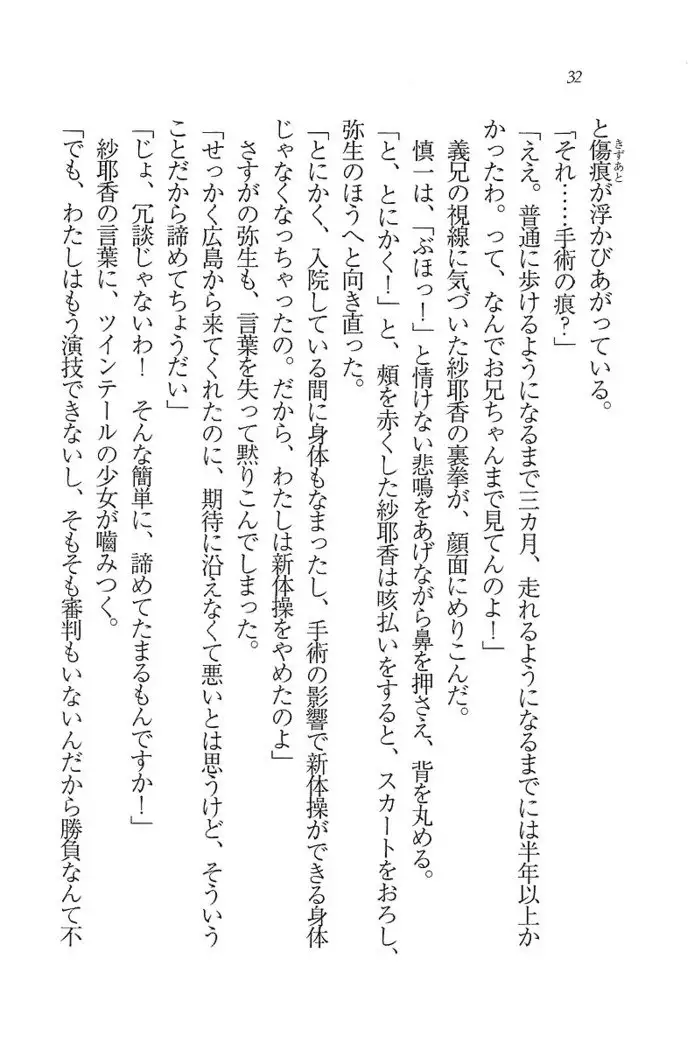 32
と傷痕が浮かびあがっている。
きずあと
「それ……手術の痕？」
「ええ。普通に歩けるようになるまで三カ月、走れるようになるまでには半年以上か
かったわ。って、なんでお兄ちゃんまで見てんのよ！」
義兄の視線に気づいた紗耶香の裏拳が、顔面にめりこんだ。
慎一は、「ぶほっ！」と情けない悲鳴をあげながら鼻を押さえ、背を丸める。
「と、とにかく！」と、頰を赤くした紗耶香は咳払いをすると、スカートをおろし、
弥生のほうへと向き直った。
「とにかく、入院している間に身体もなまったし、手術の影響で新体操ができる身体
じゃなくなっちゃったの。だから、わたしは新体操をやめたのよ」
さすがの弥生も、言葉を失って黙りこんでしまった。
「せっかく広島から来てくれたのに、期待に沿えなくて悪いとは思うけど、そういう
ことだから諦めてちょうだい」
「じょ、冗談じゃないわ！　そんな簡単に、諦めてたまるもんですか！」
紗耶香の言葉に、ツインテールの少女が嚙みつく。
「でも、わたしはもう演技できないし、そもそも審判もいないんだから勝負なんて不